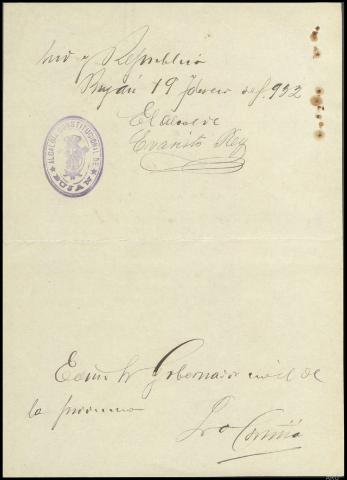 y República
Buján 19 Febrero de 1.932
El Alcalde
Evaristo Rey
ALCALDIA CONSTITUCIONAL DE
BUJAN
Excmo Sr Gobernador civil de
la provincia
La Coruña